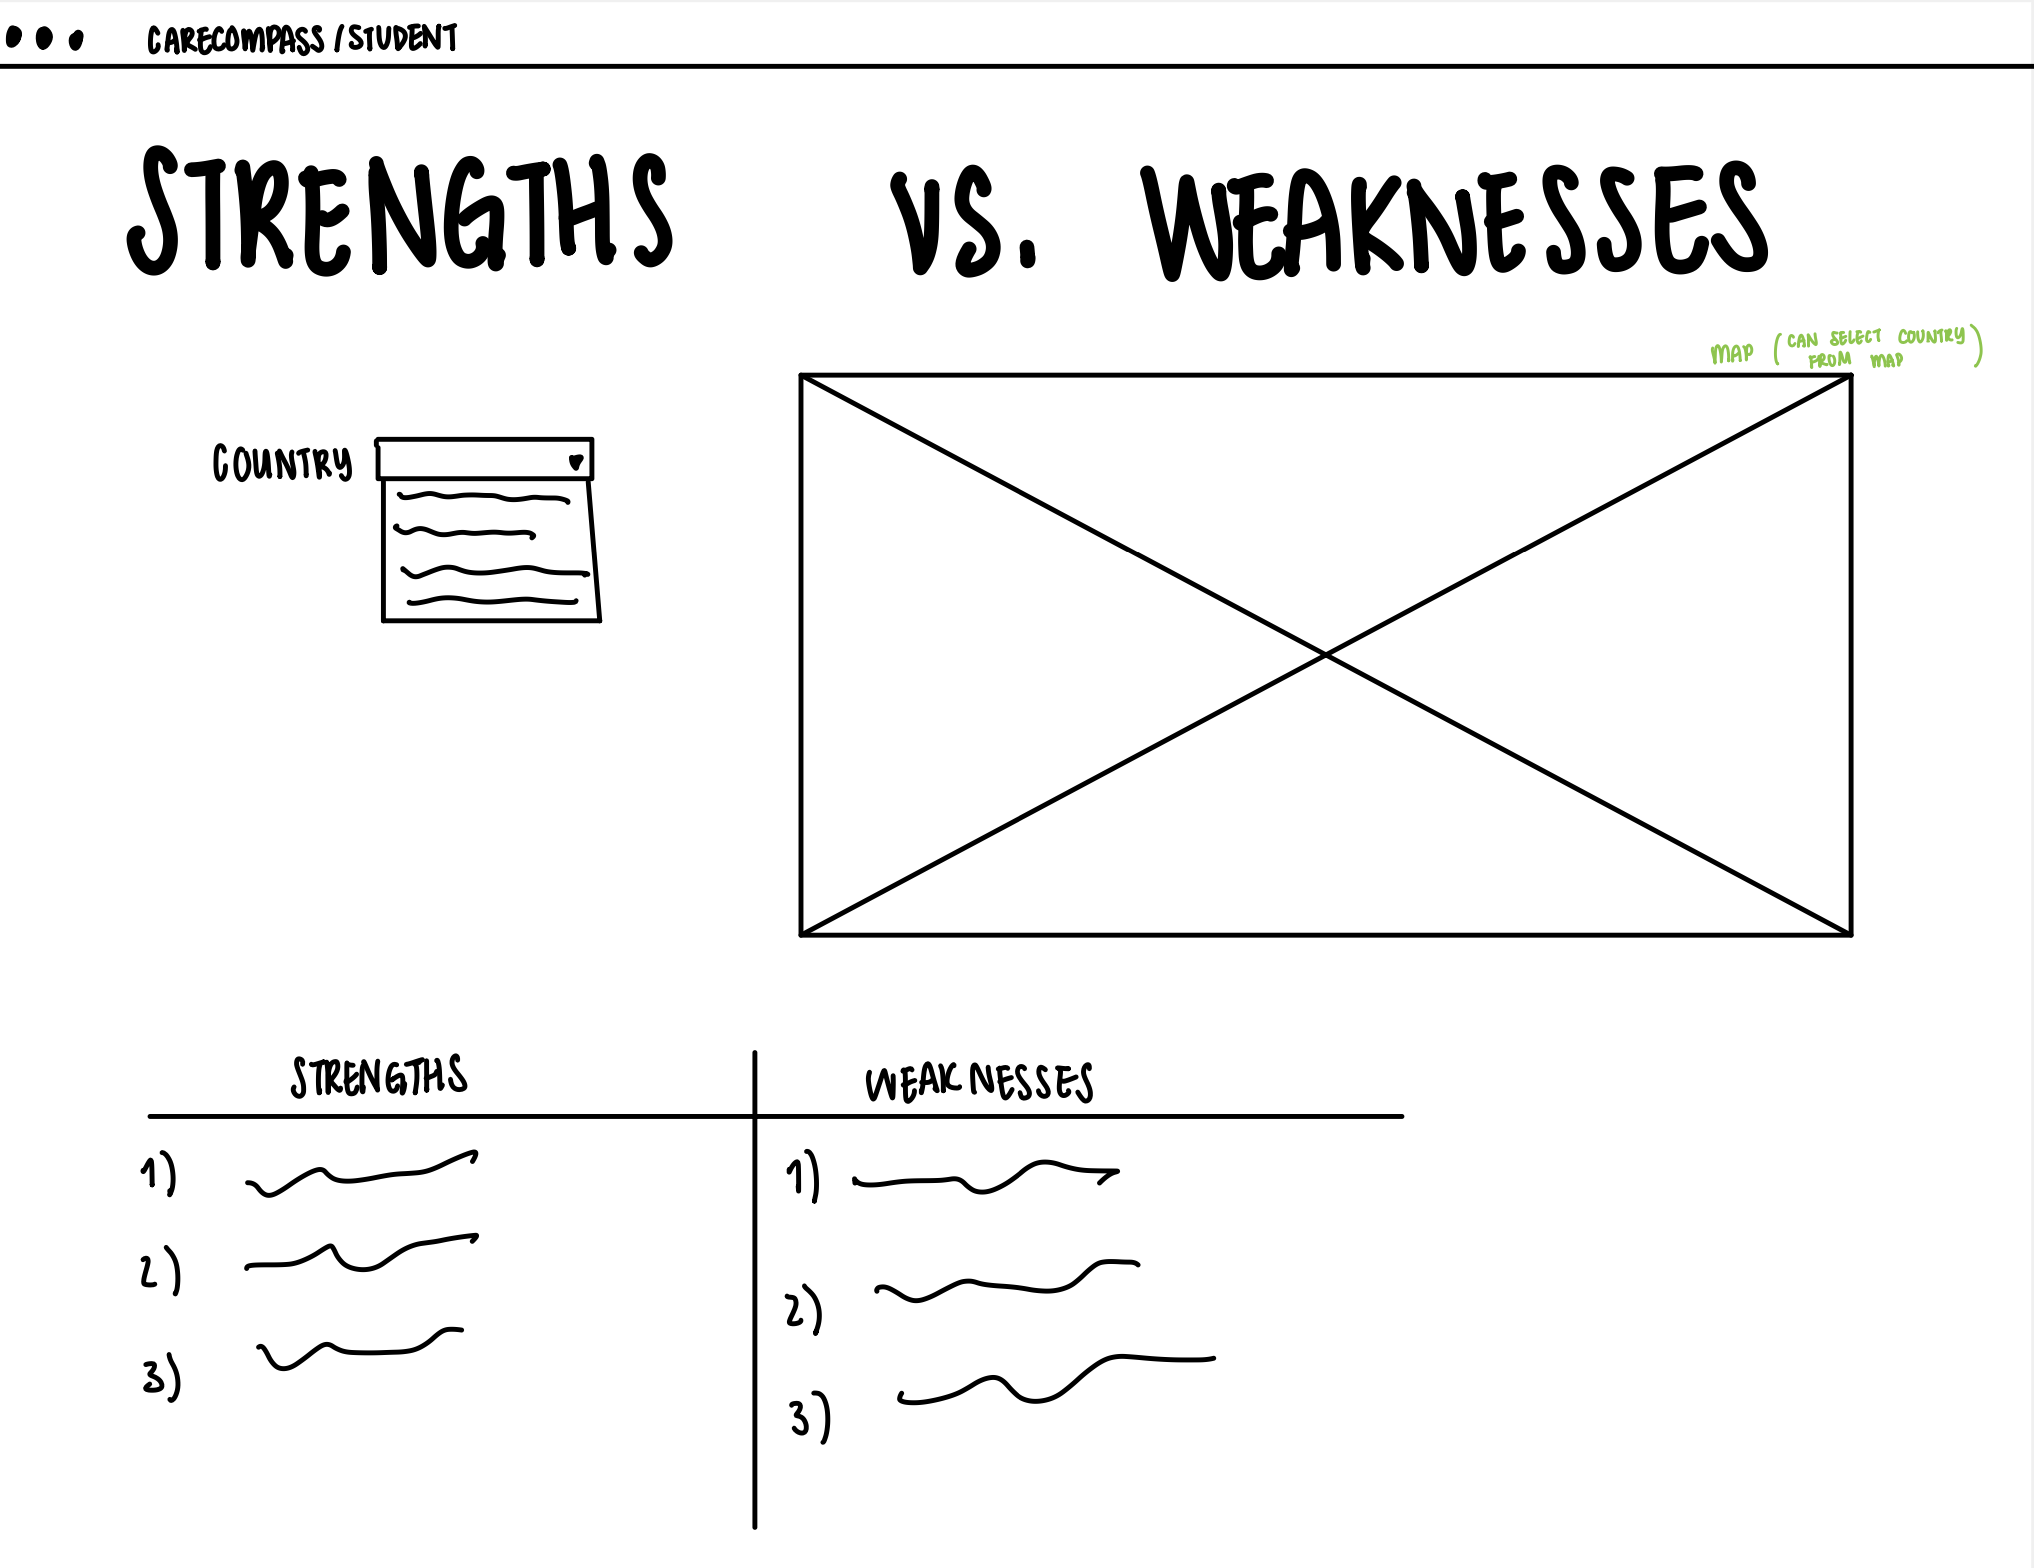 CARECOMPASS/STUDENT
STRENGTHS VS. WEAKNESSES
MAP (CAN SELECT COUNTRY
FROM MAP)
COUNTRY
STRENGTHS
WEAKNESSES
1)
1)
2)
2)
3)
3)